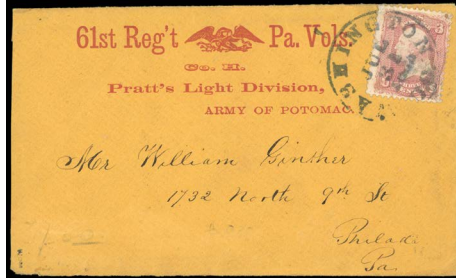 61st Reg't Pa. Vols.
Co. H.
Pratt's Light Division,
ARMY OF POTOMAC.
WASHINGTON
JUL
3
Mr William Ginther
1732 North 9th St
Philada
Pa.